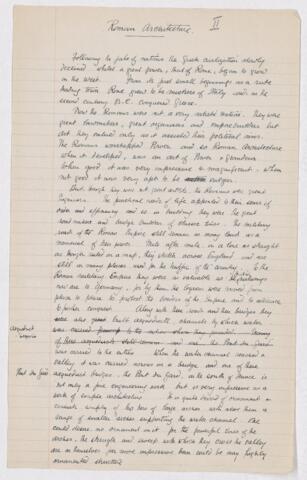 Roman Architecture. II
Following the fate of nations the Greek civilization slowly
declined whilst a great power, that of Rome, began to grow
in the West. From its first small beginnings as a rude
trading town Rome grew to be mistress of Italy and in the
second century B.C. conquered Greece.
Now the Romans were not a very artistic nation. They were
great lawmakers, great organisers and empire builders but
art they valued only as it assisted their political aims.
The Romans worshipped Power and so Roman Architecture
when it developed, was an art of Power & Grandeur.
When good it was very impressive & magnificent, when
not good it was very apt to be vulgar.
But though they were not great artists the Romans were great
Engineers. The practical needs of life appealed to their sense of
order and efficiency and so in building they were the great
road makers and bridge builders of those times. The military
roads of the Roman Empire still remain in many lands as a
memorial of their power. Mile after mile, in a line as straight
as though ruled on a map, they stretch across England and are
still in many places used for the traffic of the country. To the
Roman military Empire they were as valuable as the railways
now are to Germany, for by them the legions were moved from
place to place to protect the borders of the Empire and to advance
to further conquest. Along with these roads and their bridges they
also built aqueducts, or channels by which water
was carried
aqueduct
Segovia
was carried to the cities. When the water channel crossed a
valley it was carried across on a bridge, and one of these
Pont du Gard
aqueduct bridges, the Pont du Gard, in the south of France, is
not only a fine engineering work but is very impressive as a
work of simple architecture. It is quite devoid of ornament &
consists simply of two tiers of large arches with above them a
range of smaller arches supporting the water channel. One
could desire no ornament with it for the powerful lines of the
arches, the strength and sweep with which they cross the valley
are in themselves far more impressive than could be any highly
ornamented structure.